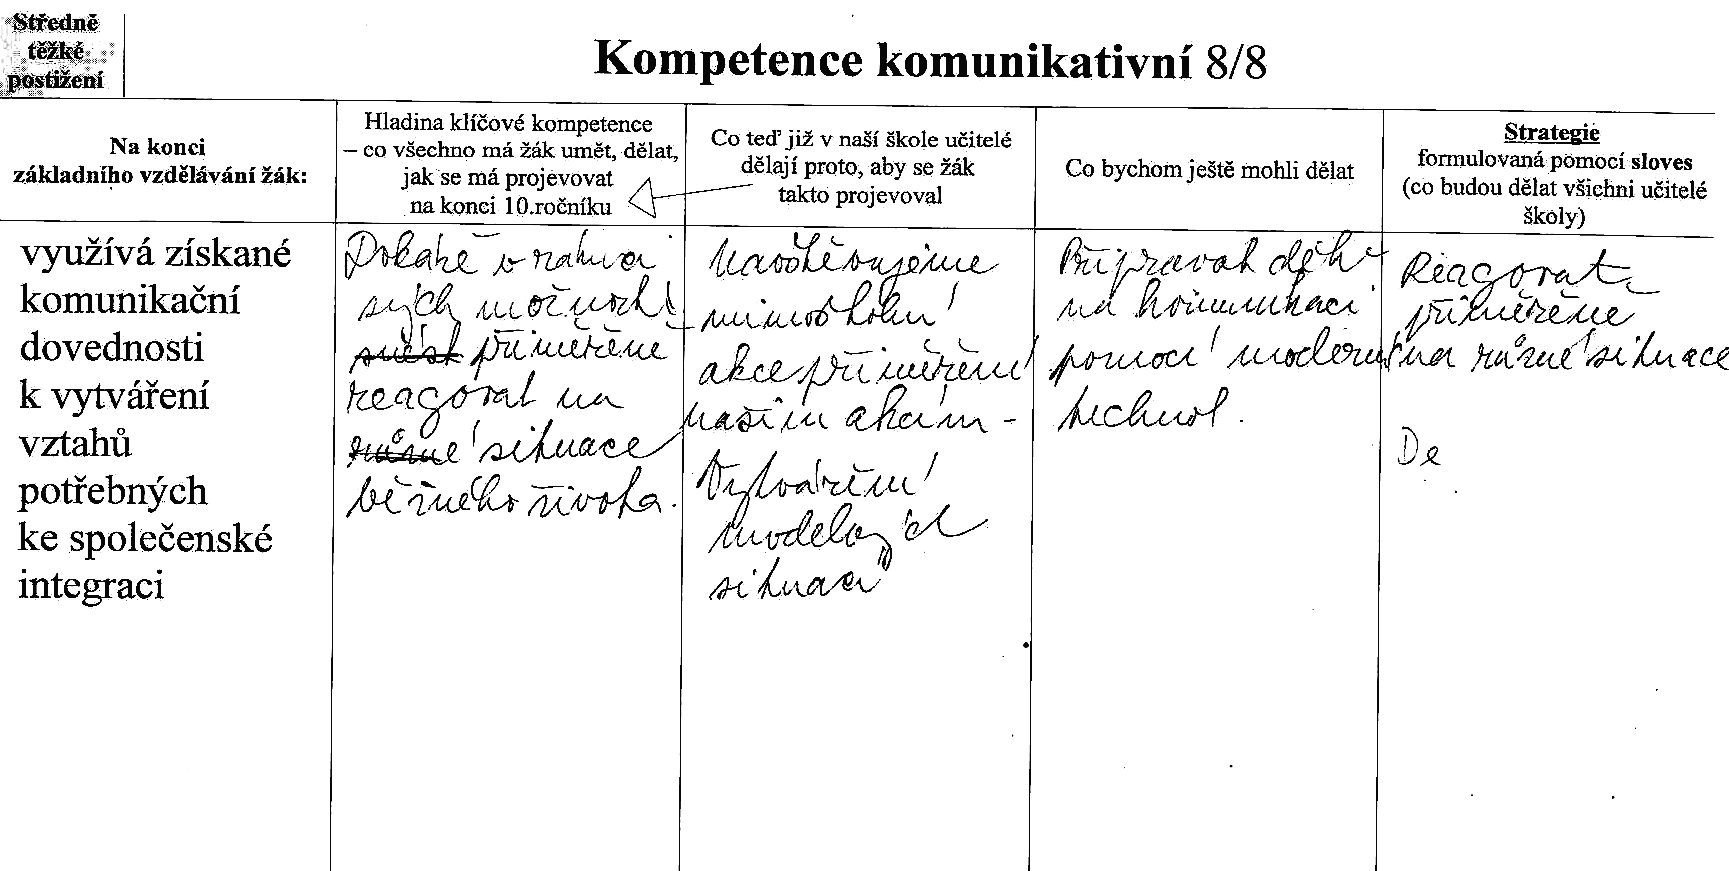 Středně
těžké
postižení
Kompetence komunikativní 8/8
Na konci
základního vzdělávání žák:
Hladina klíčové kompetence
– co všechno má žák umět, dělat,
jak se má projevovat
na konci 10.ročníku
Co teď již v naší škole učitelé
dělají proto, aby se žák
takto projevoval
Co bychom ještě mohli dělat
Strategie
formulovaná pomocí sloves
(co budou dělat všichni učitelé
školy)
využívá získané
komunikační
dovednosti
k vytváření
vztahů
potřebných
ke společenské
integraci
Dokáže v rámci
svých možností
přiměřeně
reagovat na
různé situace
běžného života.
Navštěvujeme
mimoškolní
akce přiměřené
našim akcím –
Vytváření
modelových
situací
Připravovat děti
na komunikaci
pomocí moderní
technol.
Reagovat
přiměřeně
na různé situace
De